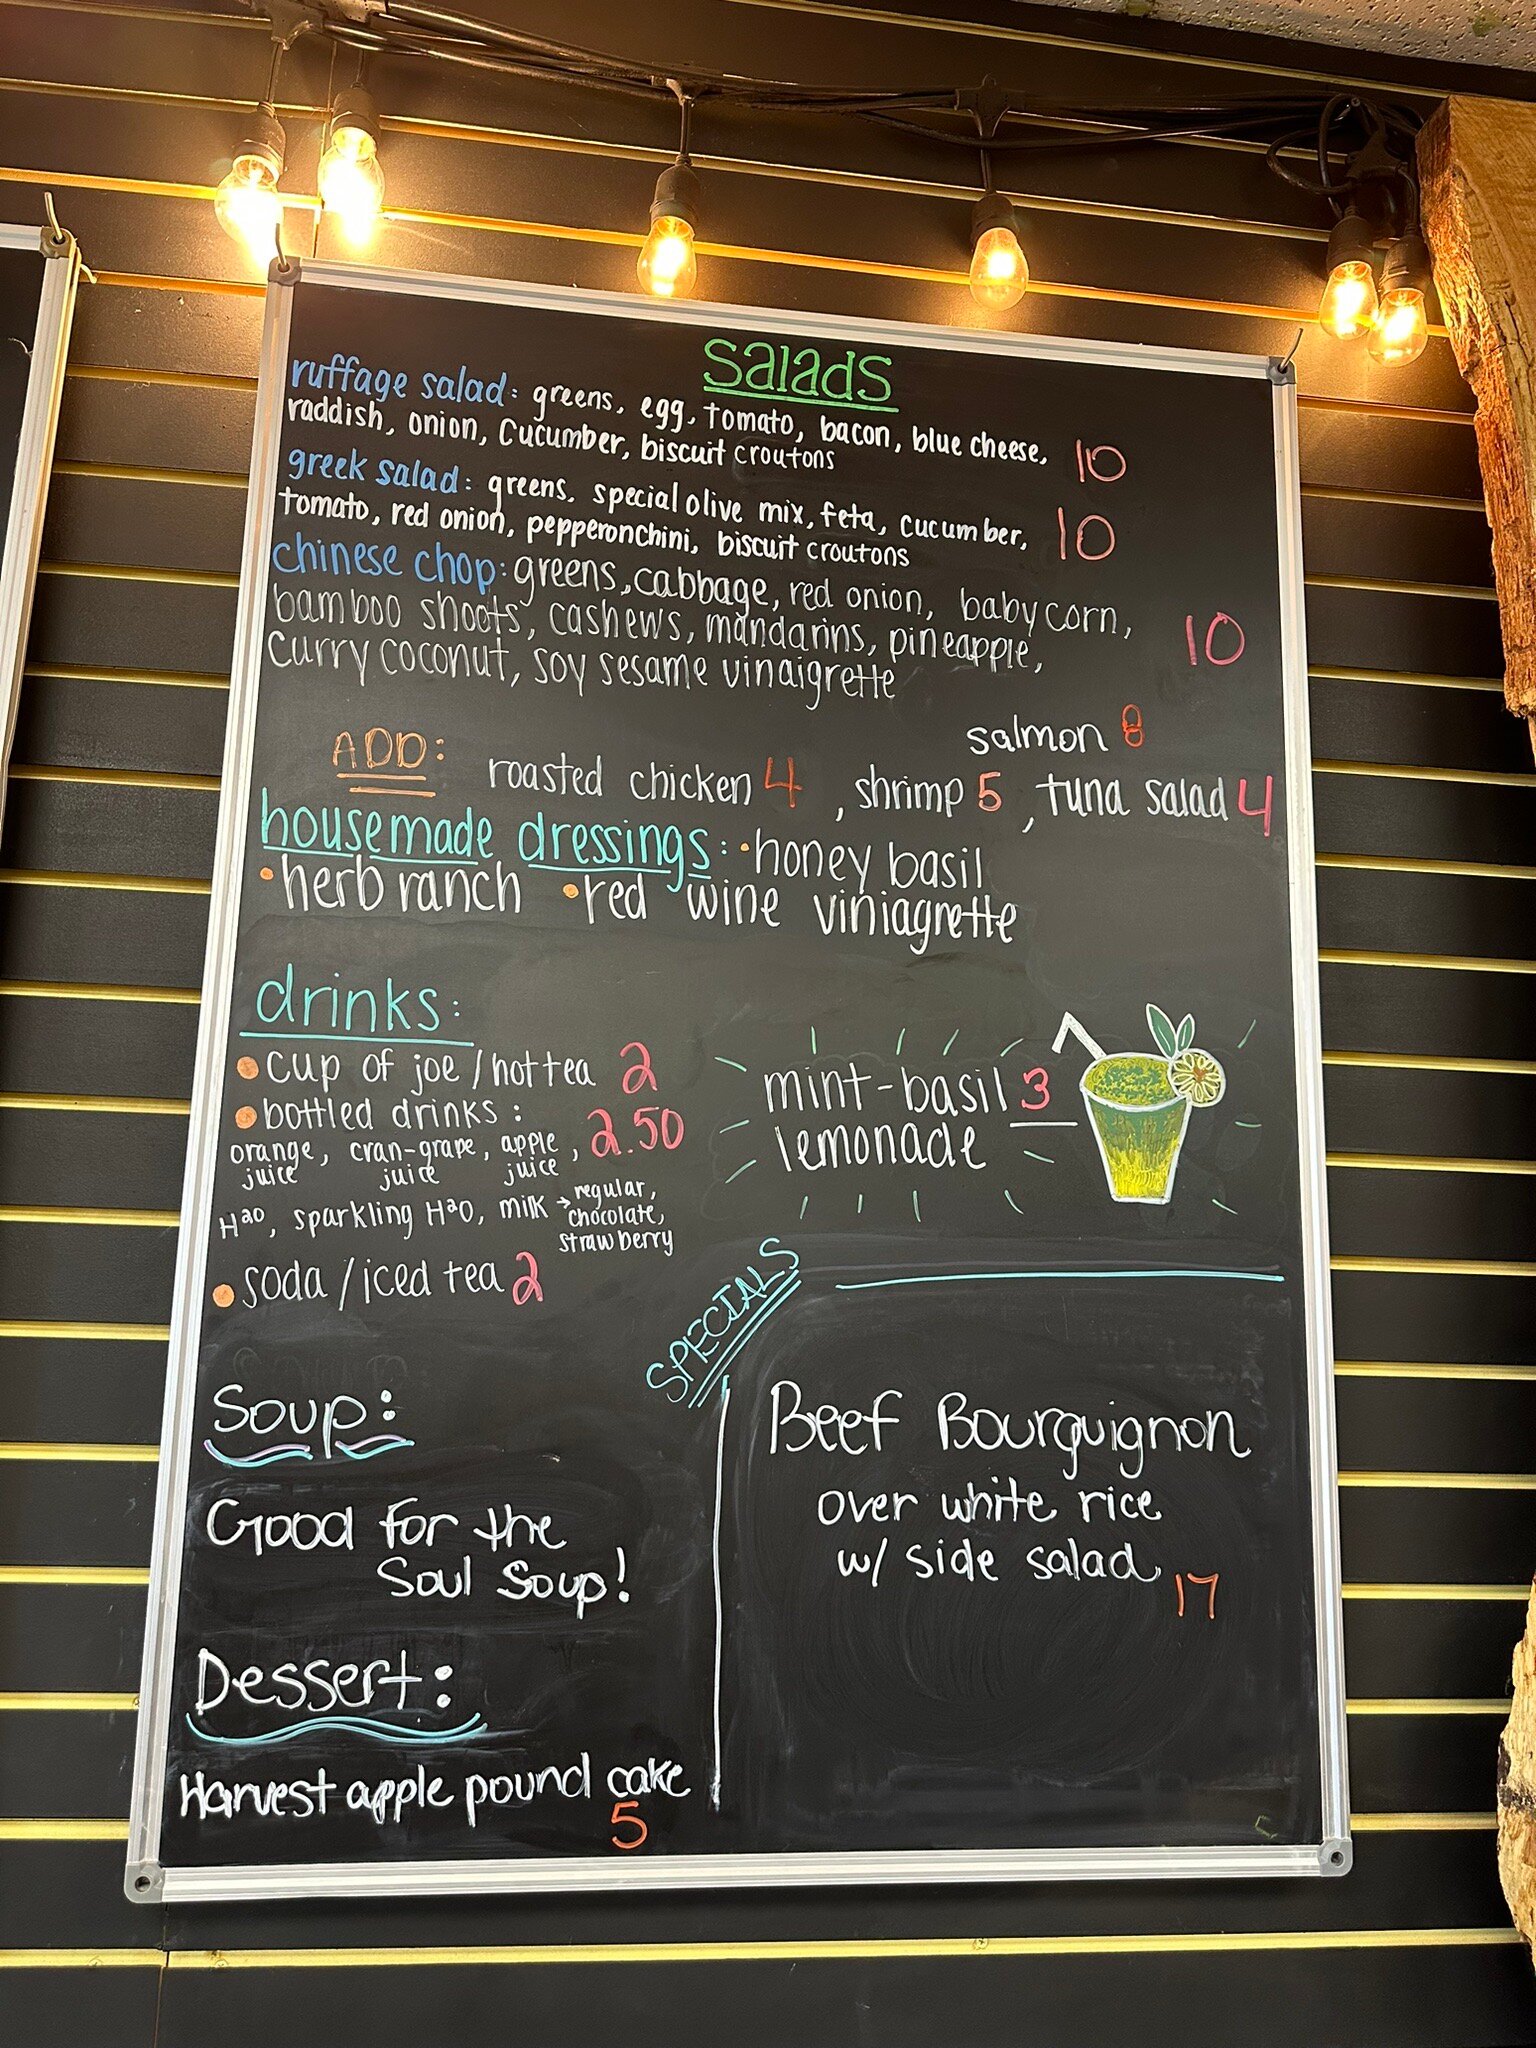 salads
ruffage salad: greens, egg, tomato, bacon, blue cheese, 10
raddish, onion, cucumber, biscuit croutons
greek salad: greens, special olive mix, feta, cucumber, 10
tomato, red onion, pepperonchini, biscuit croutons
chinese chop: greens, cabbage, red onion, baby corn,
bamboo shoots, cashews, mandarins, pineapple, 10
curry coconut, soy sesame vinaigrette
salmon 8
ADD: roasted chicken 4, shrimp 5, tuna salad 4
housemade dressings: •honey basil
•herb ranch •red wine viniagrette
drinks:
• cup of joe / hot tea 2
• bottled drinks: 2.50
orange, cran-grape, apple,
juice juice juice
H2O, sparkling H2O, milk → regular,
chocolate,
strawberry
• soda / iced tea 2
mint-basil 3
lemonade
SPECIALS
Beef Bourguignon
over white rice
w/ side salad
17
Soup:
Good for the
Soul Soup!
Dessert:
Harvest apple pound cake
5